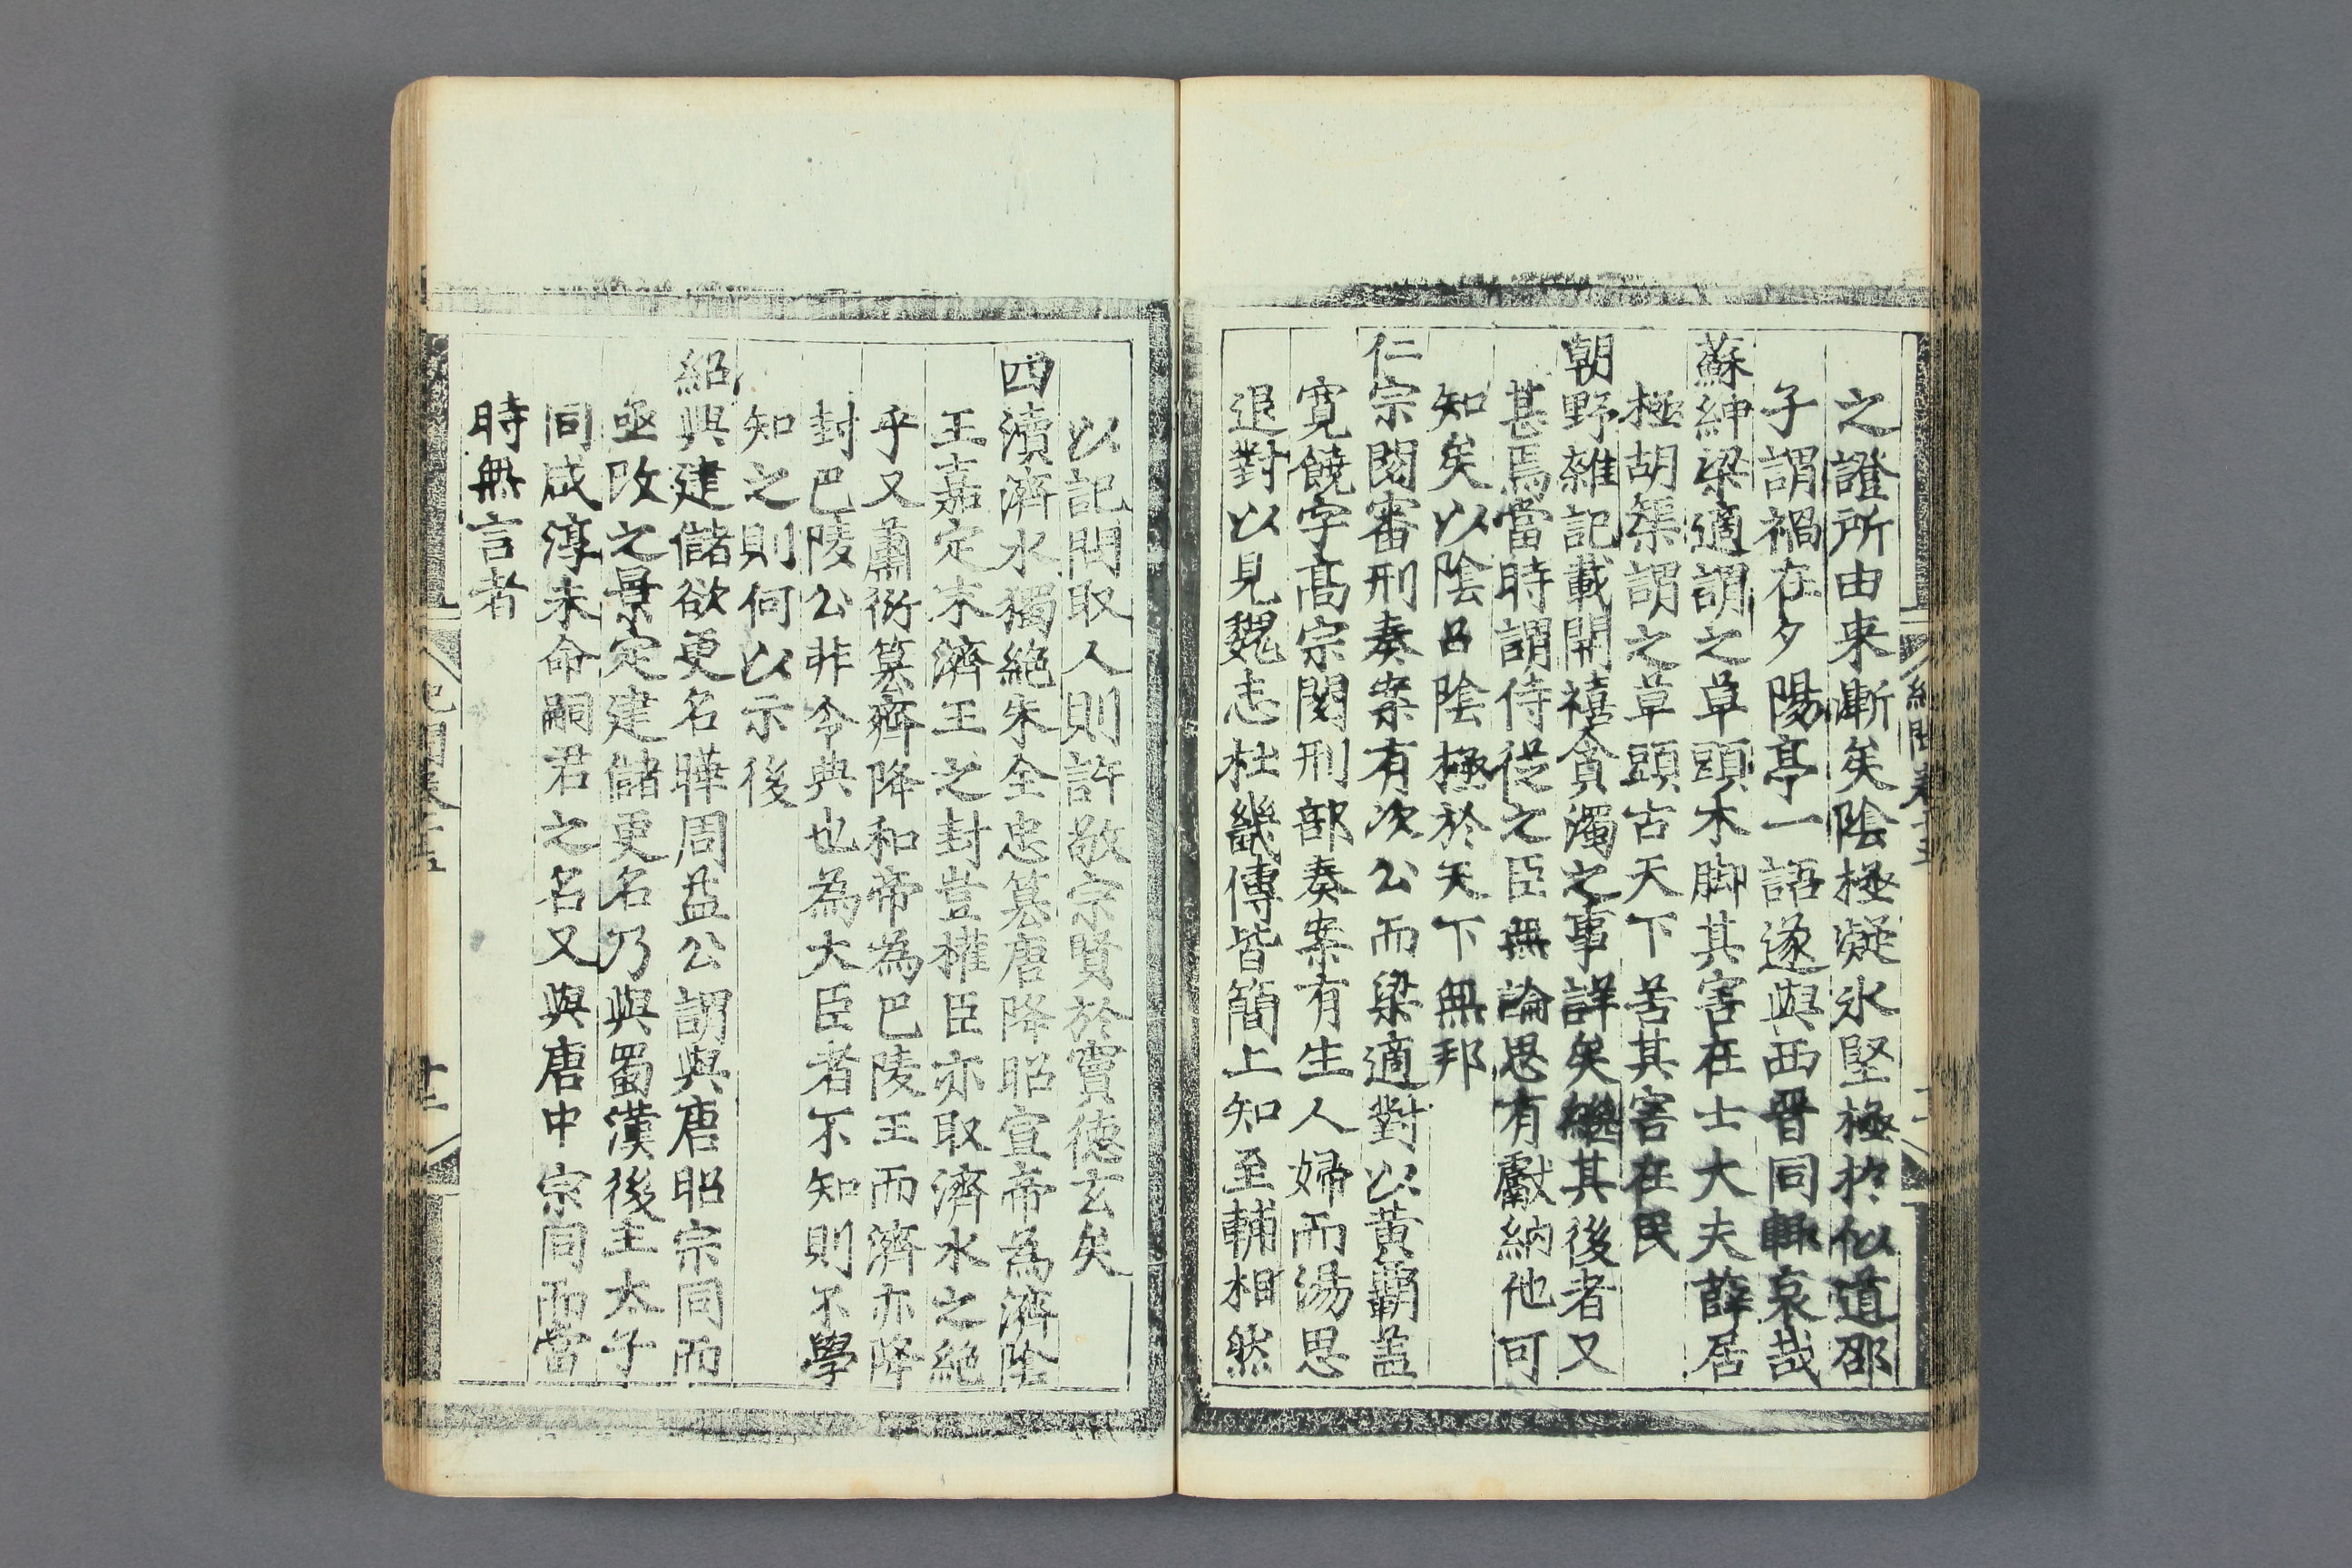 之證所由来漸矣陰極凝氷堅極於似道邵
子謂禍在夕陽亭一語遂與西晉同轍哀哉
蘇紳梁適謂之草頭木脚其害在士大夫薛居
極胡榘謂之草頭古天下苦其害在民
朝野雜記載開禧貪濁之事詳矣繼其後者又
甚焉當時謂侍從之臣無論思有獻納他可
知矣以陰召陰極於天下無邦
仁宗閱審刑奏案有次公而梁適對以黄霸盖
寛饒字高宗閱刑部奏案有生人婦而湯思
退對以見魏志杜畿傳皆簡上知至輔相然
以記聞取人則許敬宗賢於竇徳玄矣
四瀆濟水獨絶朱全忠簒唐降昭宣帝為濟陰
王嘉定末濟王之封豈權臣亦取濟水之絶
乎又蕭衍簒齊降和帝為巴陵王而濟亦降
封巴陵公非令典也為大臣者不知則不學
知之則何以示後
紹興建儲欲更名曄周益公謂與唐昭宗同而
亟改之景定建儲更名乃與蜀漢後主太子
同咸淳末命嗣君之名又與唐中宗同而當
時無言者